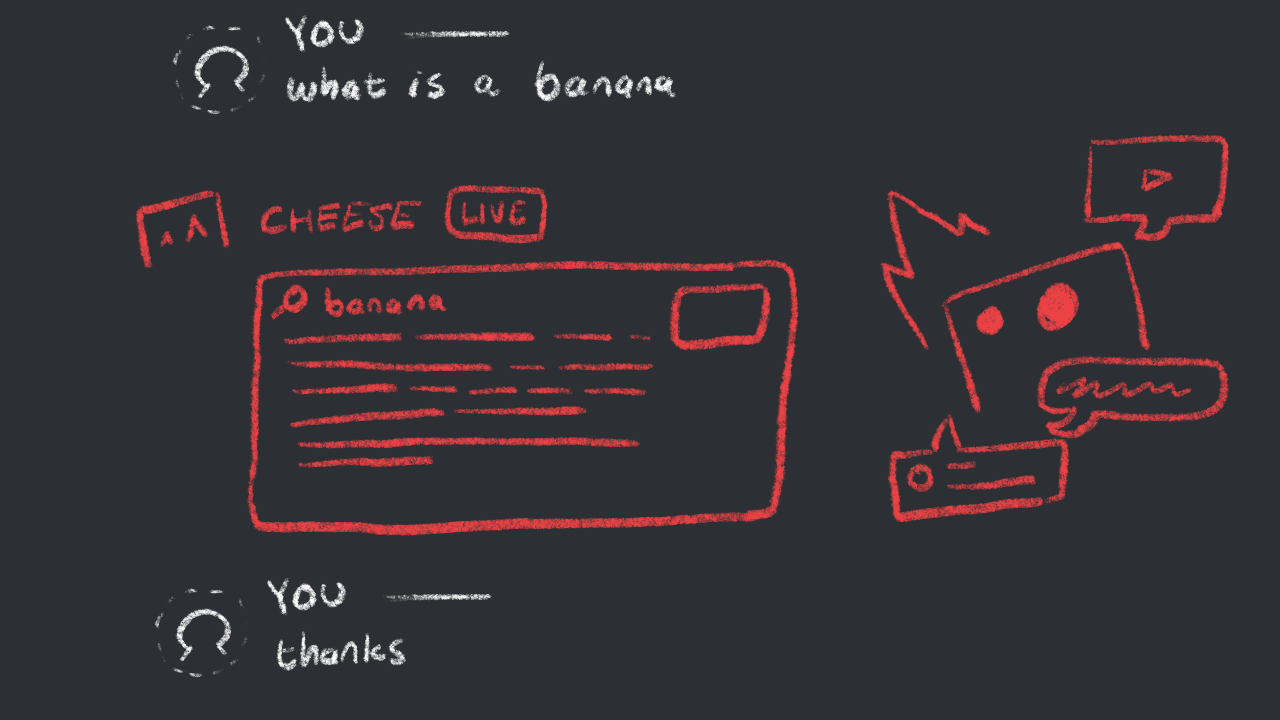 YOU
what is a banana
CHEESE LIVE
banana
YOU
thanks